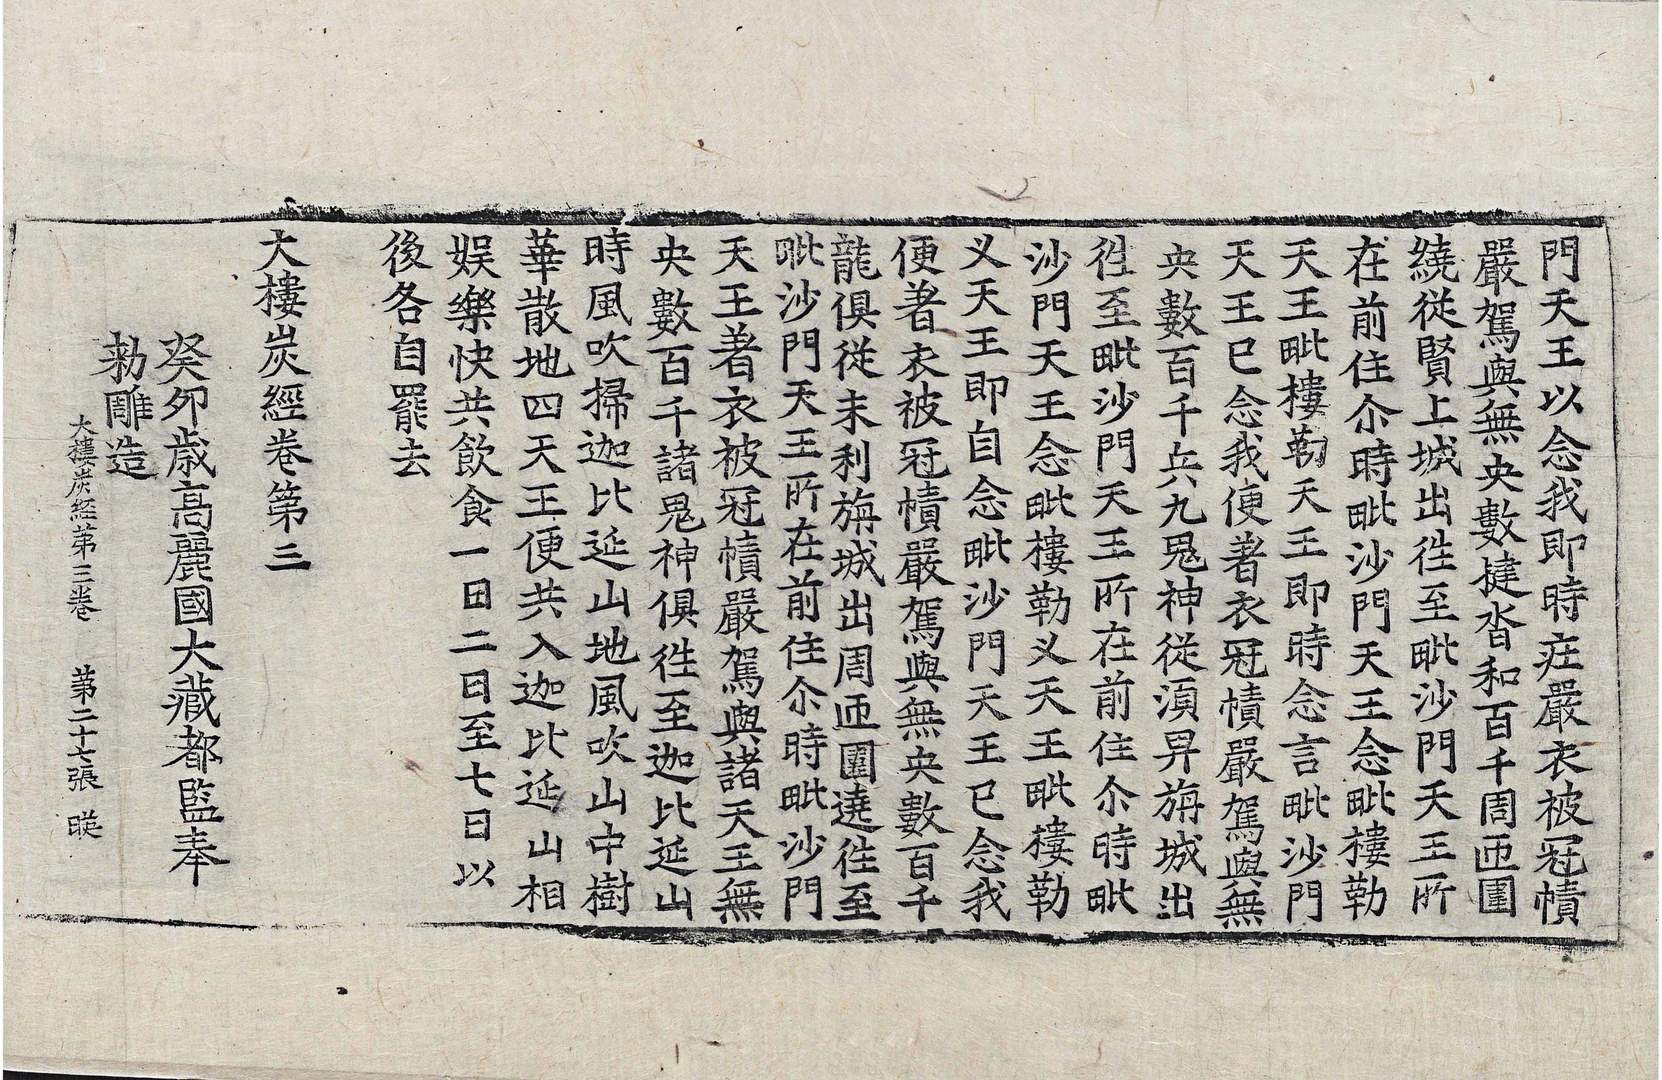 門天王以念我即時莊嚴衣被冠幘
嚴駕與無央數揵沓和百千周匝圍
繞從賢上城出往至毗沙門天王所
在前住尒時毗沙門天王念毗樓勒
天王毗樓勒天王即時念言毗沙門
天王已念我便著衣冠幘嚴駕與無
央數百千兵九鬼神從湏昇旃城出
往至毗沙門天王所在前住尒時毗
沙門天王念毗樓勒叉天王毗樓勒
叉天王即自念毗沙門天王已念我
便著衣被冠幘嚴駕與無央數百千
龍俱從末利旃城出周匝圍遶往至
毗沙門天王所在前住尒時毗沙門
天王著衣被冠幘嚴駕與諸天王無
央數百千諸鬼神俱往至迦比延山
時風吹掃迦比延山地風吹山中樹
華散地四天王便共入迦比延山相
娛樂快共飲食一日二日至七日以
後各自罷去
大樓炭經卷第三
癸卯歲高麗國大藏都監奉
勑雕造
大樓炭経苐三卷 苐二十七張 暎